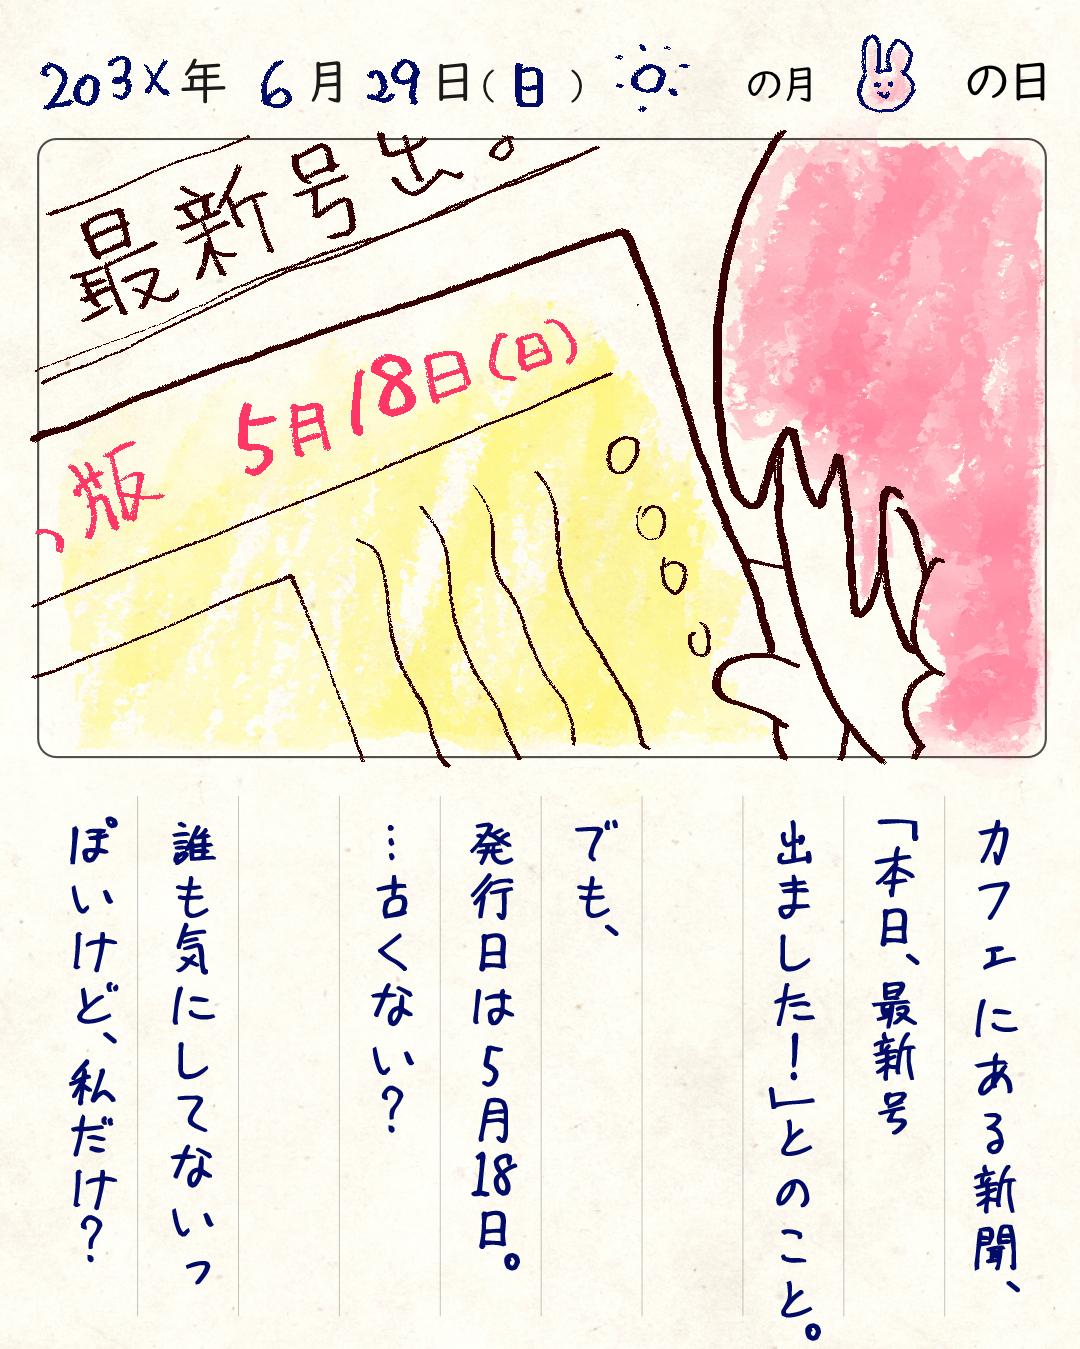 203X年 6月29日(日) の月 の日
最新号出。
版 5月18日(日)
カフェにある新聞、
「本日、最新号
出ました！」とのこと。
でも、
発行日は5月18日。
…古くない？
誰も気にしてないっ
ぽいけど、私だけ？